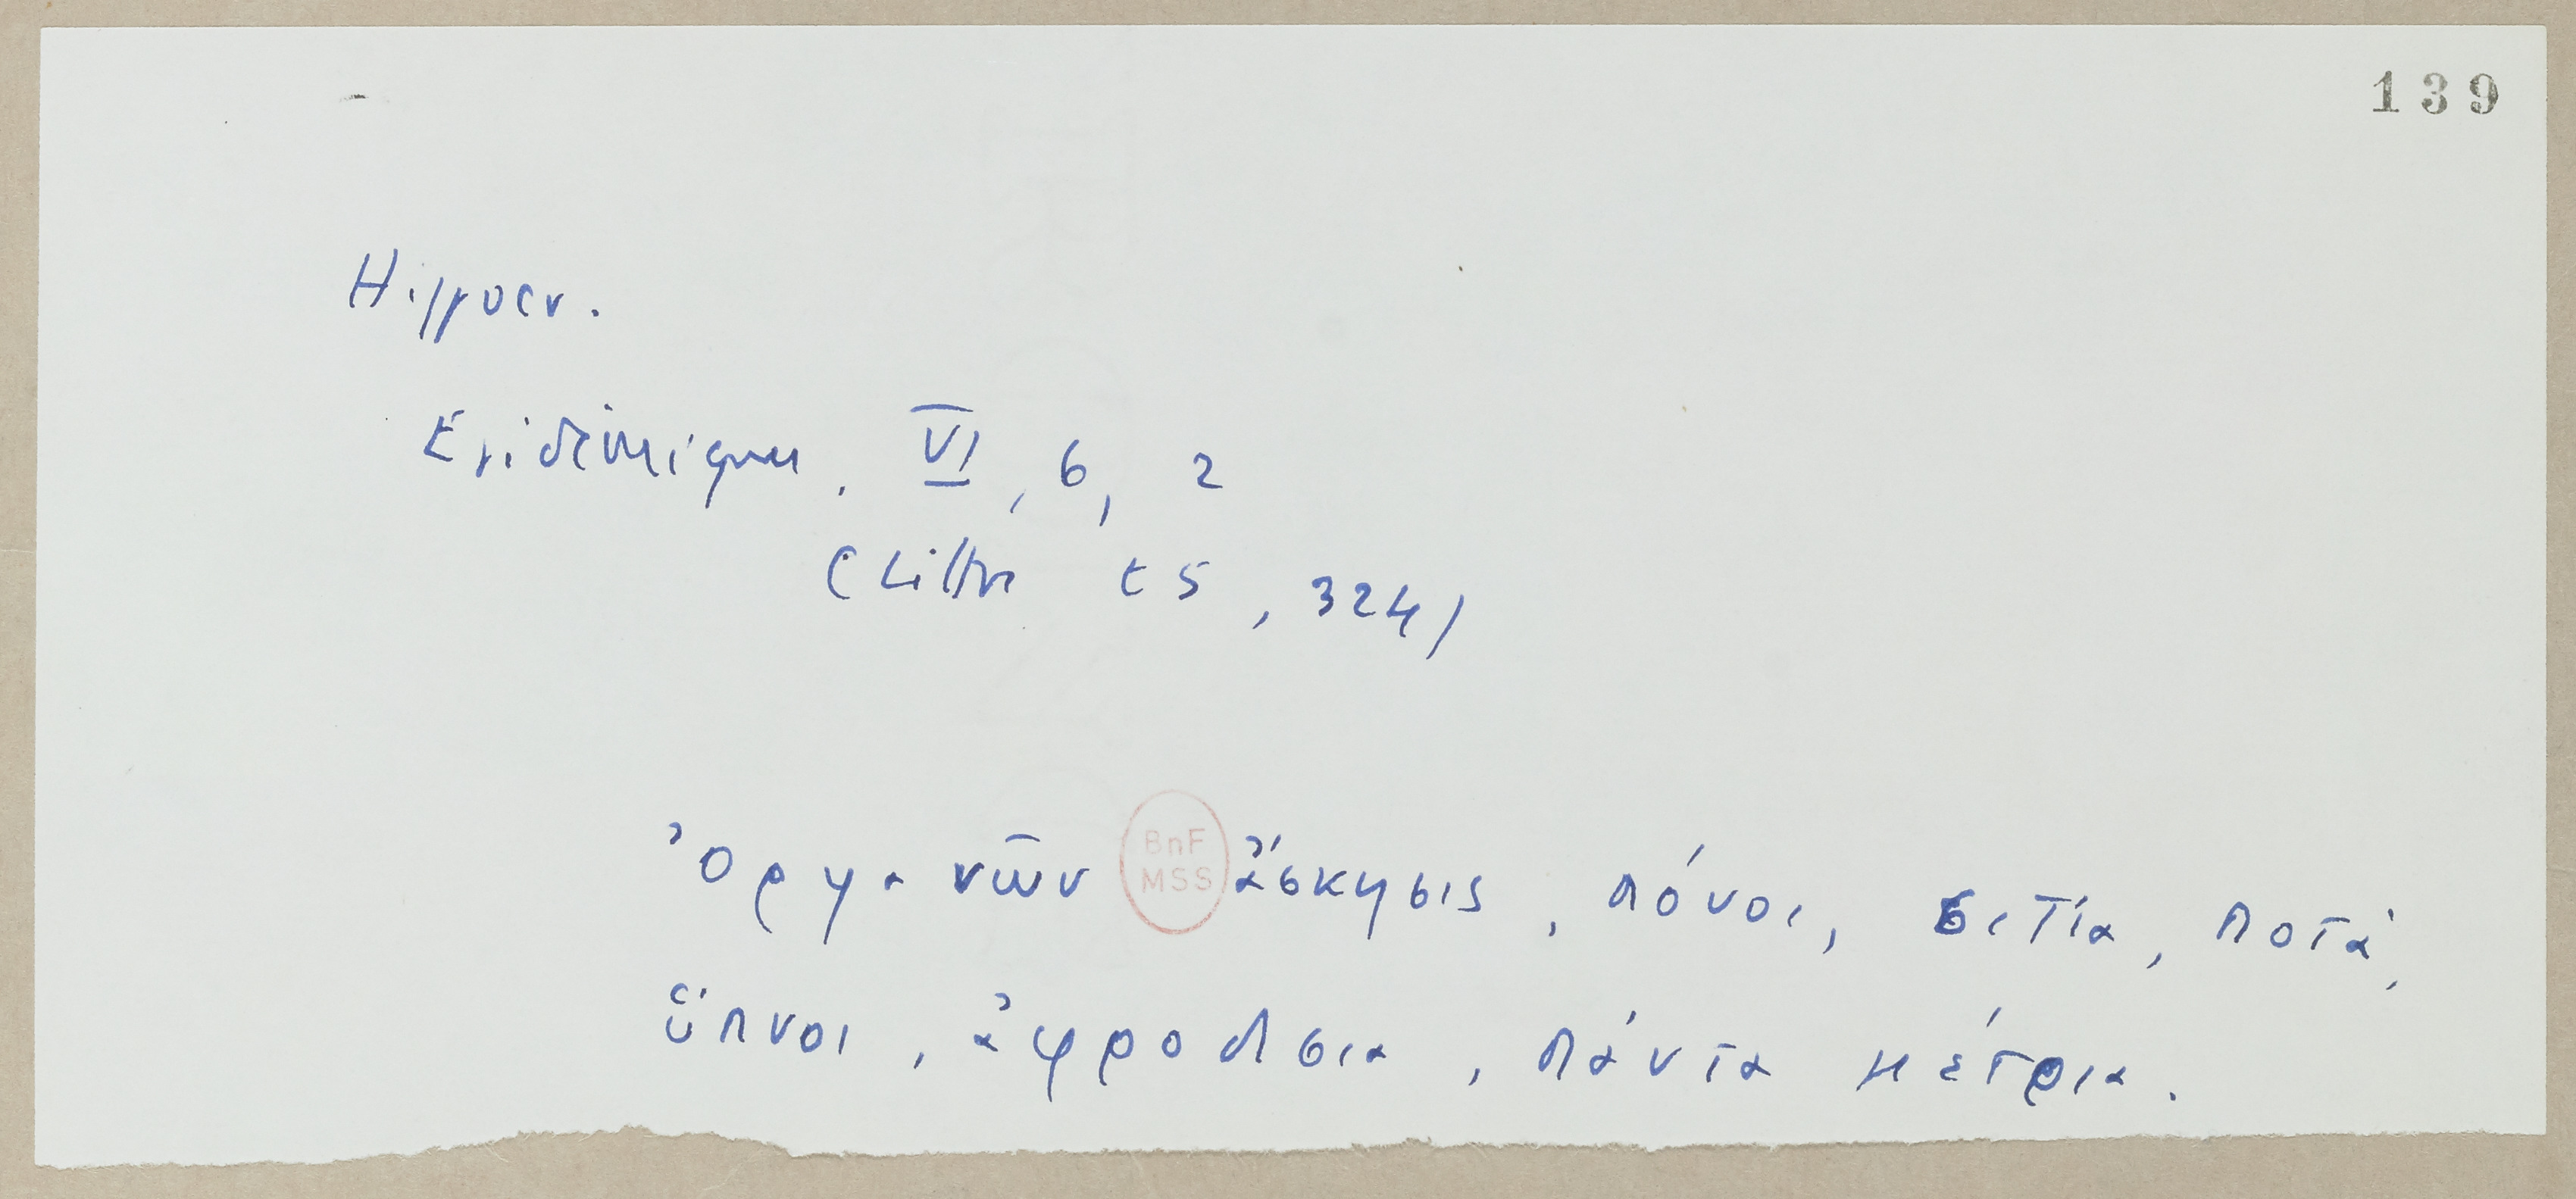 139
Hippocr.
Epidémiques. VI, 6, 2
(Littré t 5, 324)
Ὀργανῶν ἄσκησις, πόνοι, σιτία, ποτά,
BnF
MSS
ὕπνοι, ἀφροδισια, πάντα μέτρια.